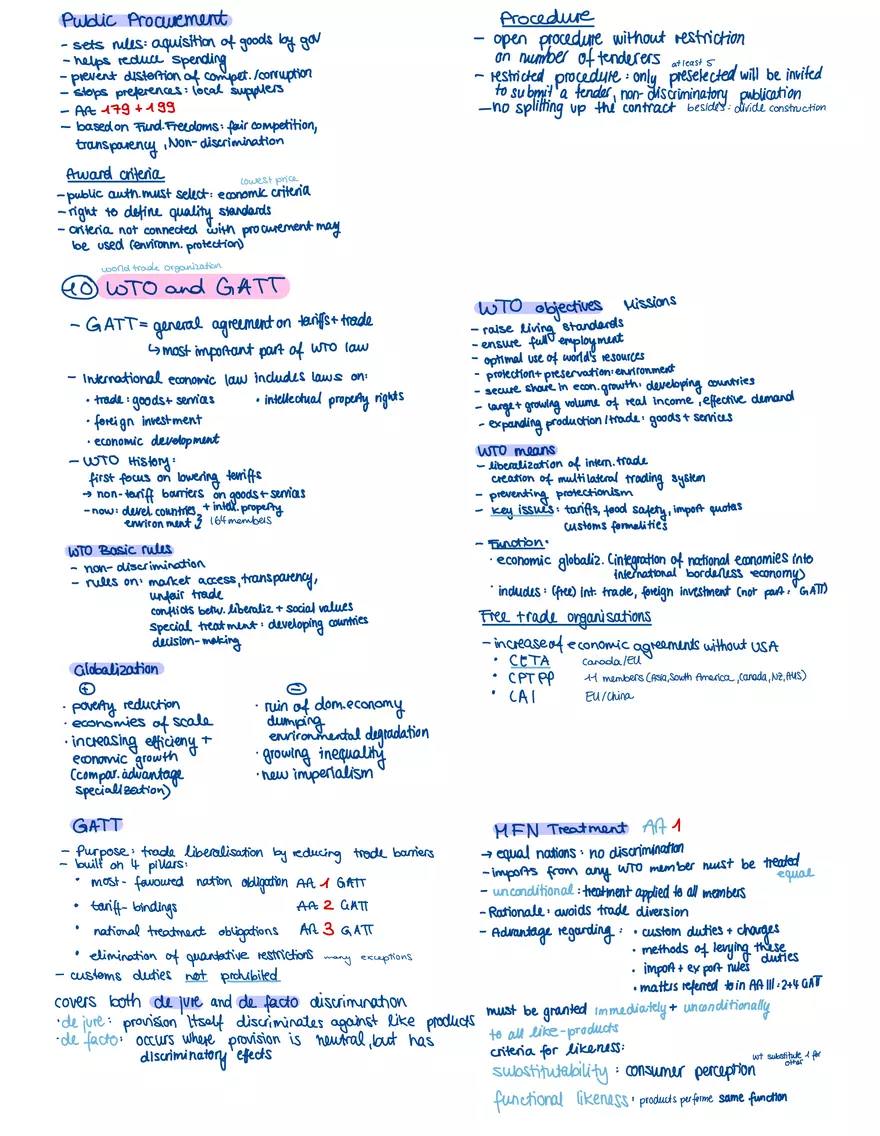 Public Procurement
- sets rules: aquisition of goods by gov
- helps reduce spending
- prevent distortion of compet./corruption
- stops preferences: local suppliers
- Art 179 + 199
- based on Fund. Freedoms: fair competition,
transparency, Non-discrimination
Award criteria
lowest price
- public auth. must select: economic criteria
- right to define quality standards
- criteria not connected with procurement may
be used (environm. protection)
Procedure
- open procedure without restriction
on number of tenderers
at least 5
- restricted procedure: only preselected will be invited
to submit a tender, non-discriminatory publication
- no splitting up the contract besides: divide construction
world trade organization
10 WTO and GATT
- GATT = general agreement on tariffs + trade
↳ most important part of WTO law
- International economic law includes laws on:
• trade: goods + services • intellectual property rights
• foreign investment
• economic development
- WTO History:
first focus on lowering terriffs
→ non-tariff barriers on goods + services
+ intell. property
- now: devel. countries
environment } 164 members
WTO Basic rules
- non-discrimination
- rules on: market access, transparency,
unfair trade
conflicts betw. liberaliz + social values
special treatment: developing countries
decision-making
Globalization
+
• poverty reduction
• economies of scale
• increasing efficieny +
economic growth
(compar. advantage
specialization)
-
• ruin of dom. economy
dumping
environmental degradation
• growing inequality
• new imperialism
WTO objectives Missions
- raise living standards
- ensure full employment
- optimal use of world's resources
- protection + preservation: environment
- secure share in econ. growth: developing countries
- large + growing volume of real income, effective demand
- expanding production/trade: goods + services
WTO means
- liberalization of intern. trade
creation of multilateral trading system
- preventing protectionism
- key issues: tariffs, food safety, import quotas
customs formalities
- Function:
• economic globaliz. (integration of national economies into
international borderless economy)
• includes: (free) Int. trade, foreign investment (not part: GATT)
Free trade organisations
- increase of economic agreements without USA
• CETA Canada/EU
• CPTPP 11 members (Asia, South America, Canada, NZ, AUS)
• CAI EU/China
GATT
- Purpose: trade liberalisation by reducing trade barriers
- built on 4 pillars:
• most-favoured nation obligation Art 1 GATT
• tariff-bindings Art 2 GATT
• national treatment obligations Art 3 GATT
• elimination of quantative restrictions many exceptions
- customs duties not prohibited
covers both de jure and de facto discrimination
• de jure: provision itself discriminates against like products
• de facto: occurs where provision is neutral, but has
discriminatory effects
MFN Treatment Art 1
→ equal nations: no discrimination
- imports from any WTO member must be treated
equal
- unconditional: treatment applied to all members
- Rationale: avoids trade diversion
- Advantage regarding: • custom duties + charges
• methods of levying these
duties
• import + export rules
• matters referred to in Art III: 2+4 GAT
must be granted immediately + unconditionally
to all like-products
criteria for likeness:
substitutability: consumer perception
substitute 1 for
other
functional likeness: products performe same function